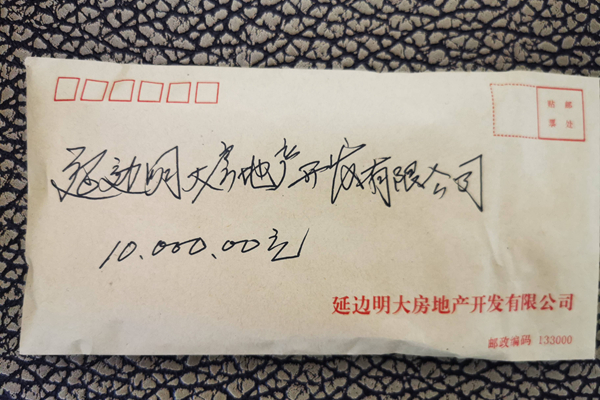 贴 邮
票 处
延边明大房地产开发有限公司
10.000.00元
延边明大房地产开发有限公司
邮政编码 133000